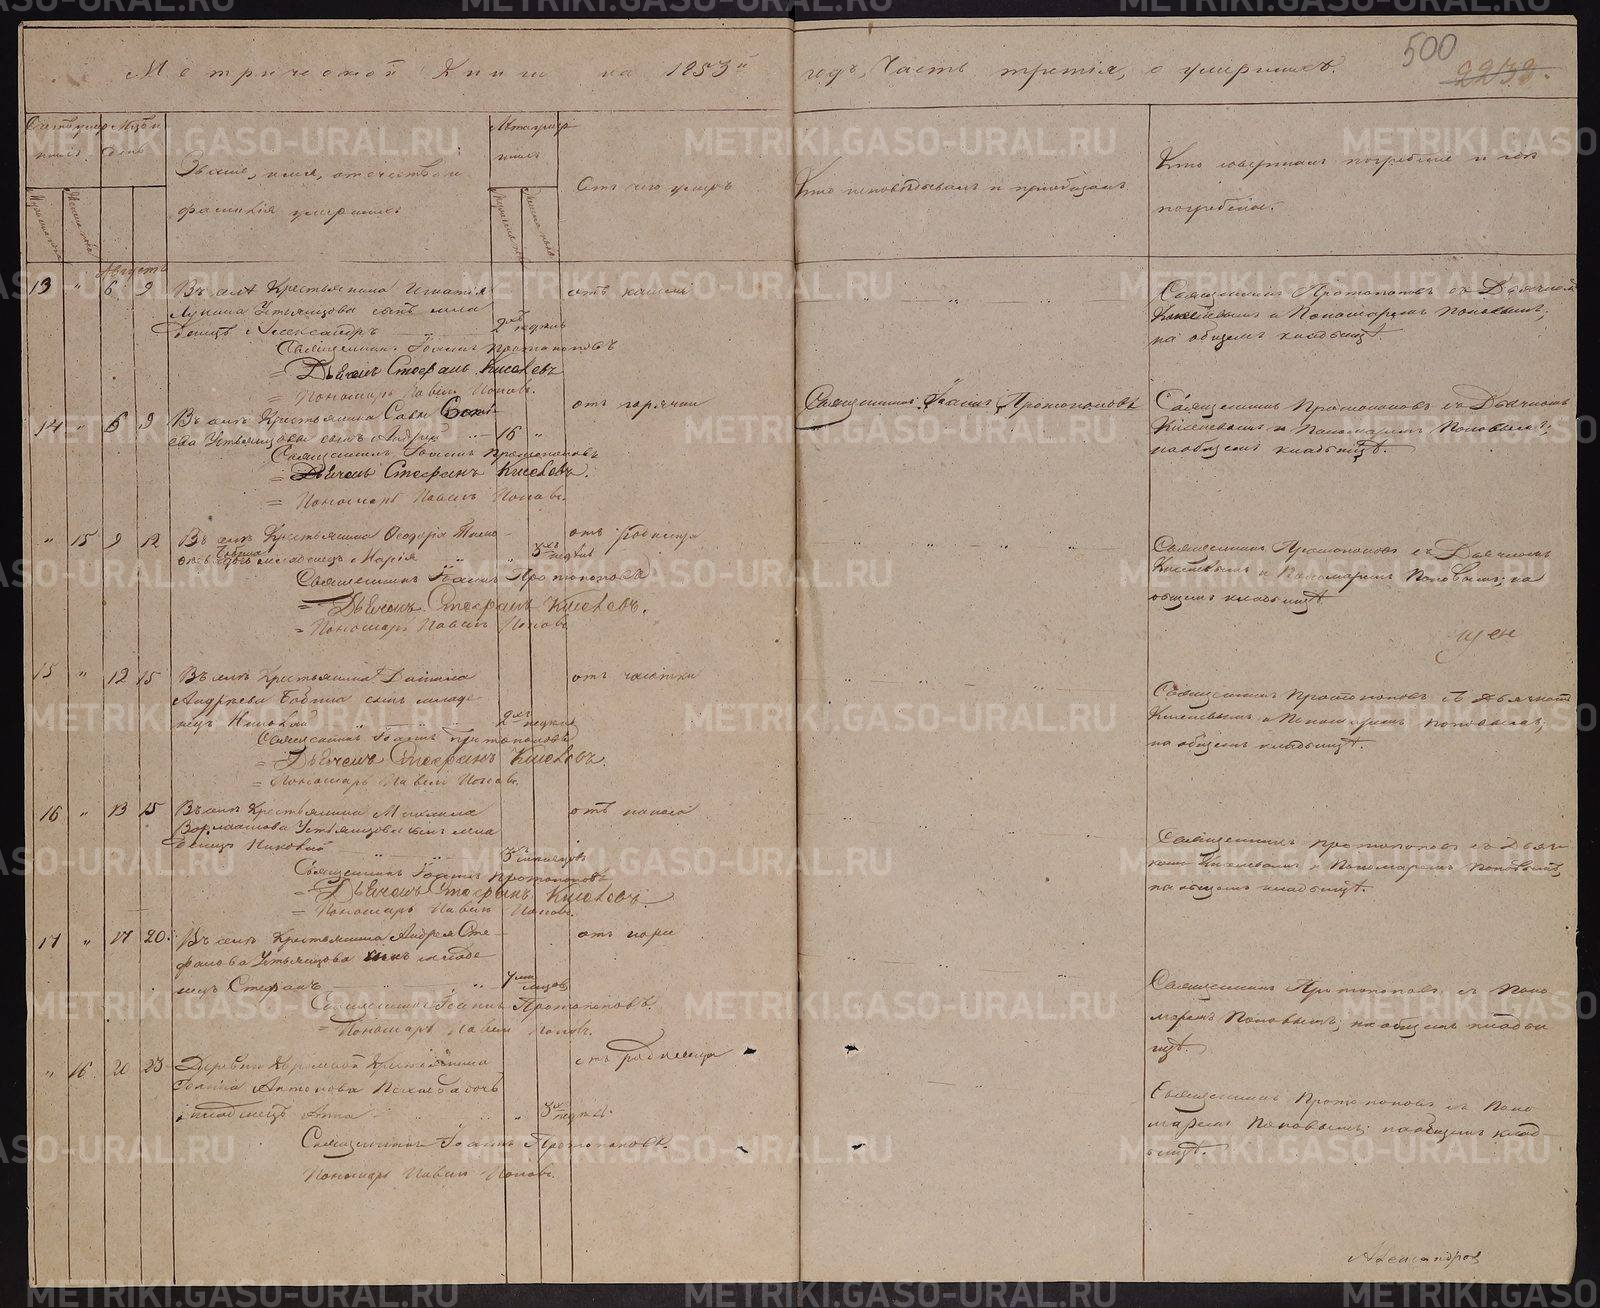 Метрической Книги на 1853й годъ, Часть третія, о умершихъ.
500
2232.
Звание, имя, отечество и
фамилія умершихъ
Отъ чего умеръ
Кто исповѣдывалъ и приобщалъ
Кто совершалъ погребеніе и гдѣ
погребены.
Мужеска пола
Женска пола
Августъ
13 " 6 9 Въ селѣ Крестьянина Игнатія
Лукина Устьянцова сынъ мла
денецъ Александръ 2хъ недѣль
отъ кашля
Священникъ Іоаннъ Протопоповъ
= Дьячекъ Стефанъ Киселевъ
= Пономарь Павелъ Поповъ.
Священникъ Протопоповъ съ Дьячкомъ
Киселевымъ и Пономаремъ Поповымъ,
на общемъ кладбищѣ.
14 " 6 9 Въ селѣ Крестьянина Савы
ева Устьянцова сынъ Андрей 16 "
отъ горячки
Священникъ Іоаннъ Протопоповъ
Священникъ Іоаннъ Протопоповъ
= Дьячекъ Стефанъ Киселевъ.
= Пономарь Павелъ Поповъ.
Священникъ Протопоповъ съ Дьячкомъ
Киселевымъ и Пономаремъ Поповымъ,
на общемъ кладбищѣ.
" 15 9 12 Въ селѣ Крестьянина Феодора
младенецъ Марія 3хъ недѣль
отъ родимца
Священникъ Іоаннъ Протопоповъ
= Дьячекъ Стефанъ Киселевъ.
= Пономарь Павелъ Поповъ.
Священникъ Протопоповъ съ Дьячкомъ
Киселевымъ и Пономаремъ Поповымъ, на
общемъ кладбищѣ
15 " 12 15 Въ селѣ Крестьянина Данила
Андреева Бабина сынъ младе
нецъ Николай 2хъ недѣль
Священникъ Іоаннъ Протопоповъ
= Дьячекъ Стефанъ Киселевъ.
= Пономарь Павелъ Поповъ.
Священникъ Протопоповъ съ Дьячкомъ
Киселевымъ и Пономаремъ Поповымъ,
на общемъ кладбищѣ.
16 " 13 15 Въ селѣ Крестьянина Михаила
Варлаамова Устьянцова сынъ мла
денецъ 3 мѣсяцовъ
отъ поноса
Священникъ Іоаннъ Протопоповъ
= Дьячекъ Стефанъ Киселевъ.
= Пономарь Павелъ Поповъ.
Священникъ Протопоповъ съ Дьяч
комъ Киселевымъ и Пономаремъ Поповымъ,
на общемъ кладбищѣ.
17 " 17 20 Въ селѣ Крестьянина Андрея Сте
фанова Устьянцова сынъ младе
нецъ Стефанъ 7
отъ кори
Священникъ Іоаннъ Протопоповъ.
= Пономарь Павелъ Поповъ.
Священникъ Протопоповъ съ Поно
маремъ Поповымъ, на общемъ кладби
щѣ.
" 16 20 23 Деревни Крестьянина
Антонова дочь
младенецъ Анна 3хъ недѣль
отъ родимца
Священникъ Іоаннъ Протопоповъ.
Пономарь Павелъ Поповъ.
Священникъ Протопоповъ съ Поно
маремъ Поповымъ на общемъ клад
бищѣ.
Александров
METRIKI.GASO-URAL.RU